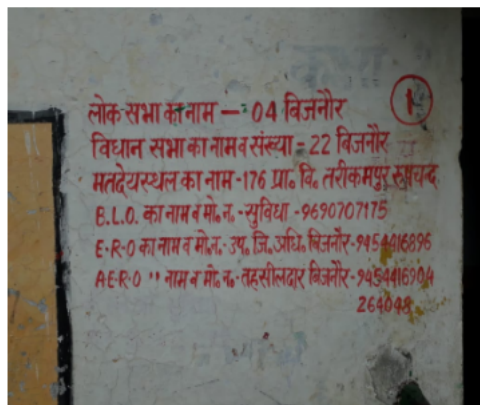 1
लोक सभा का नाम — 04 बिजनौर
विधान सभा का नाम व संख्या - 22 बिजनौर
मतदेयस्थल का नाम -176 प्रा॰ वि॰ तरीकमपुर रूपचन्द
B.L.O. का नाम व मो॰ न॰ - सुविधा -9690707175
E.R.O का नाम व मो॰ न॰ - उप॰ जि॰ अधि॰ बिजनौर -9454416896
A.E.R.O " नाम व मो॰ न॰ - तहसीलदार बिजनौर -9454416904
264048